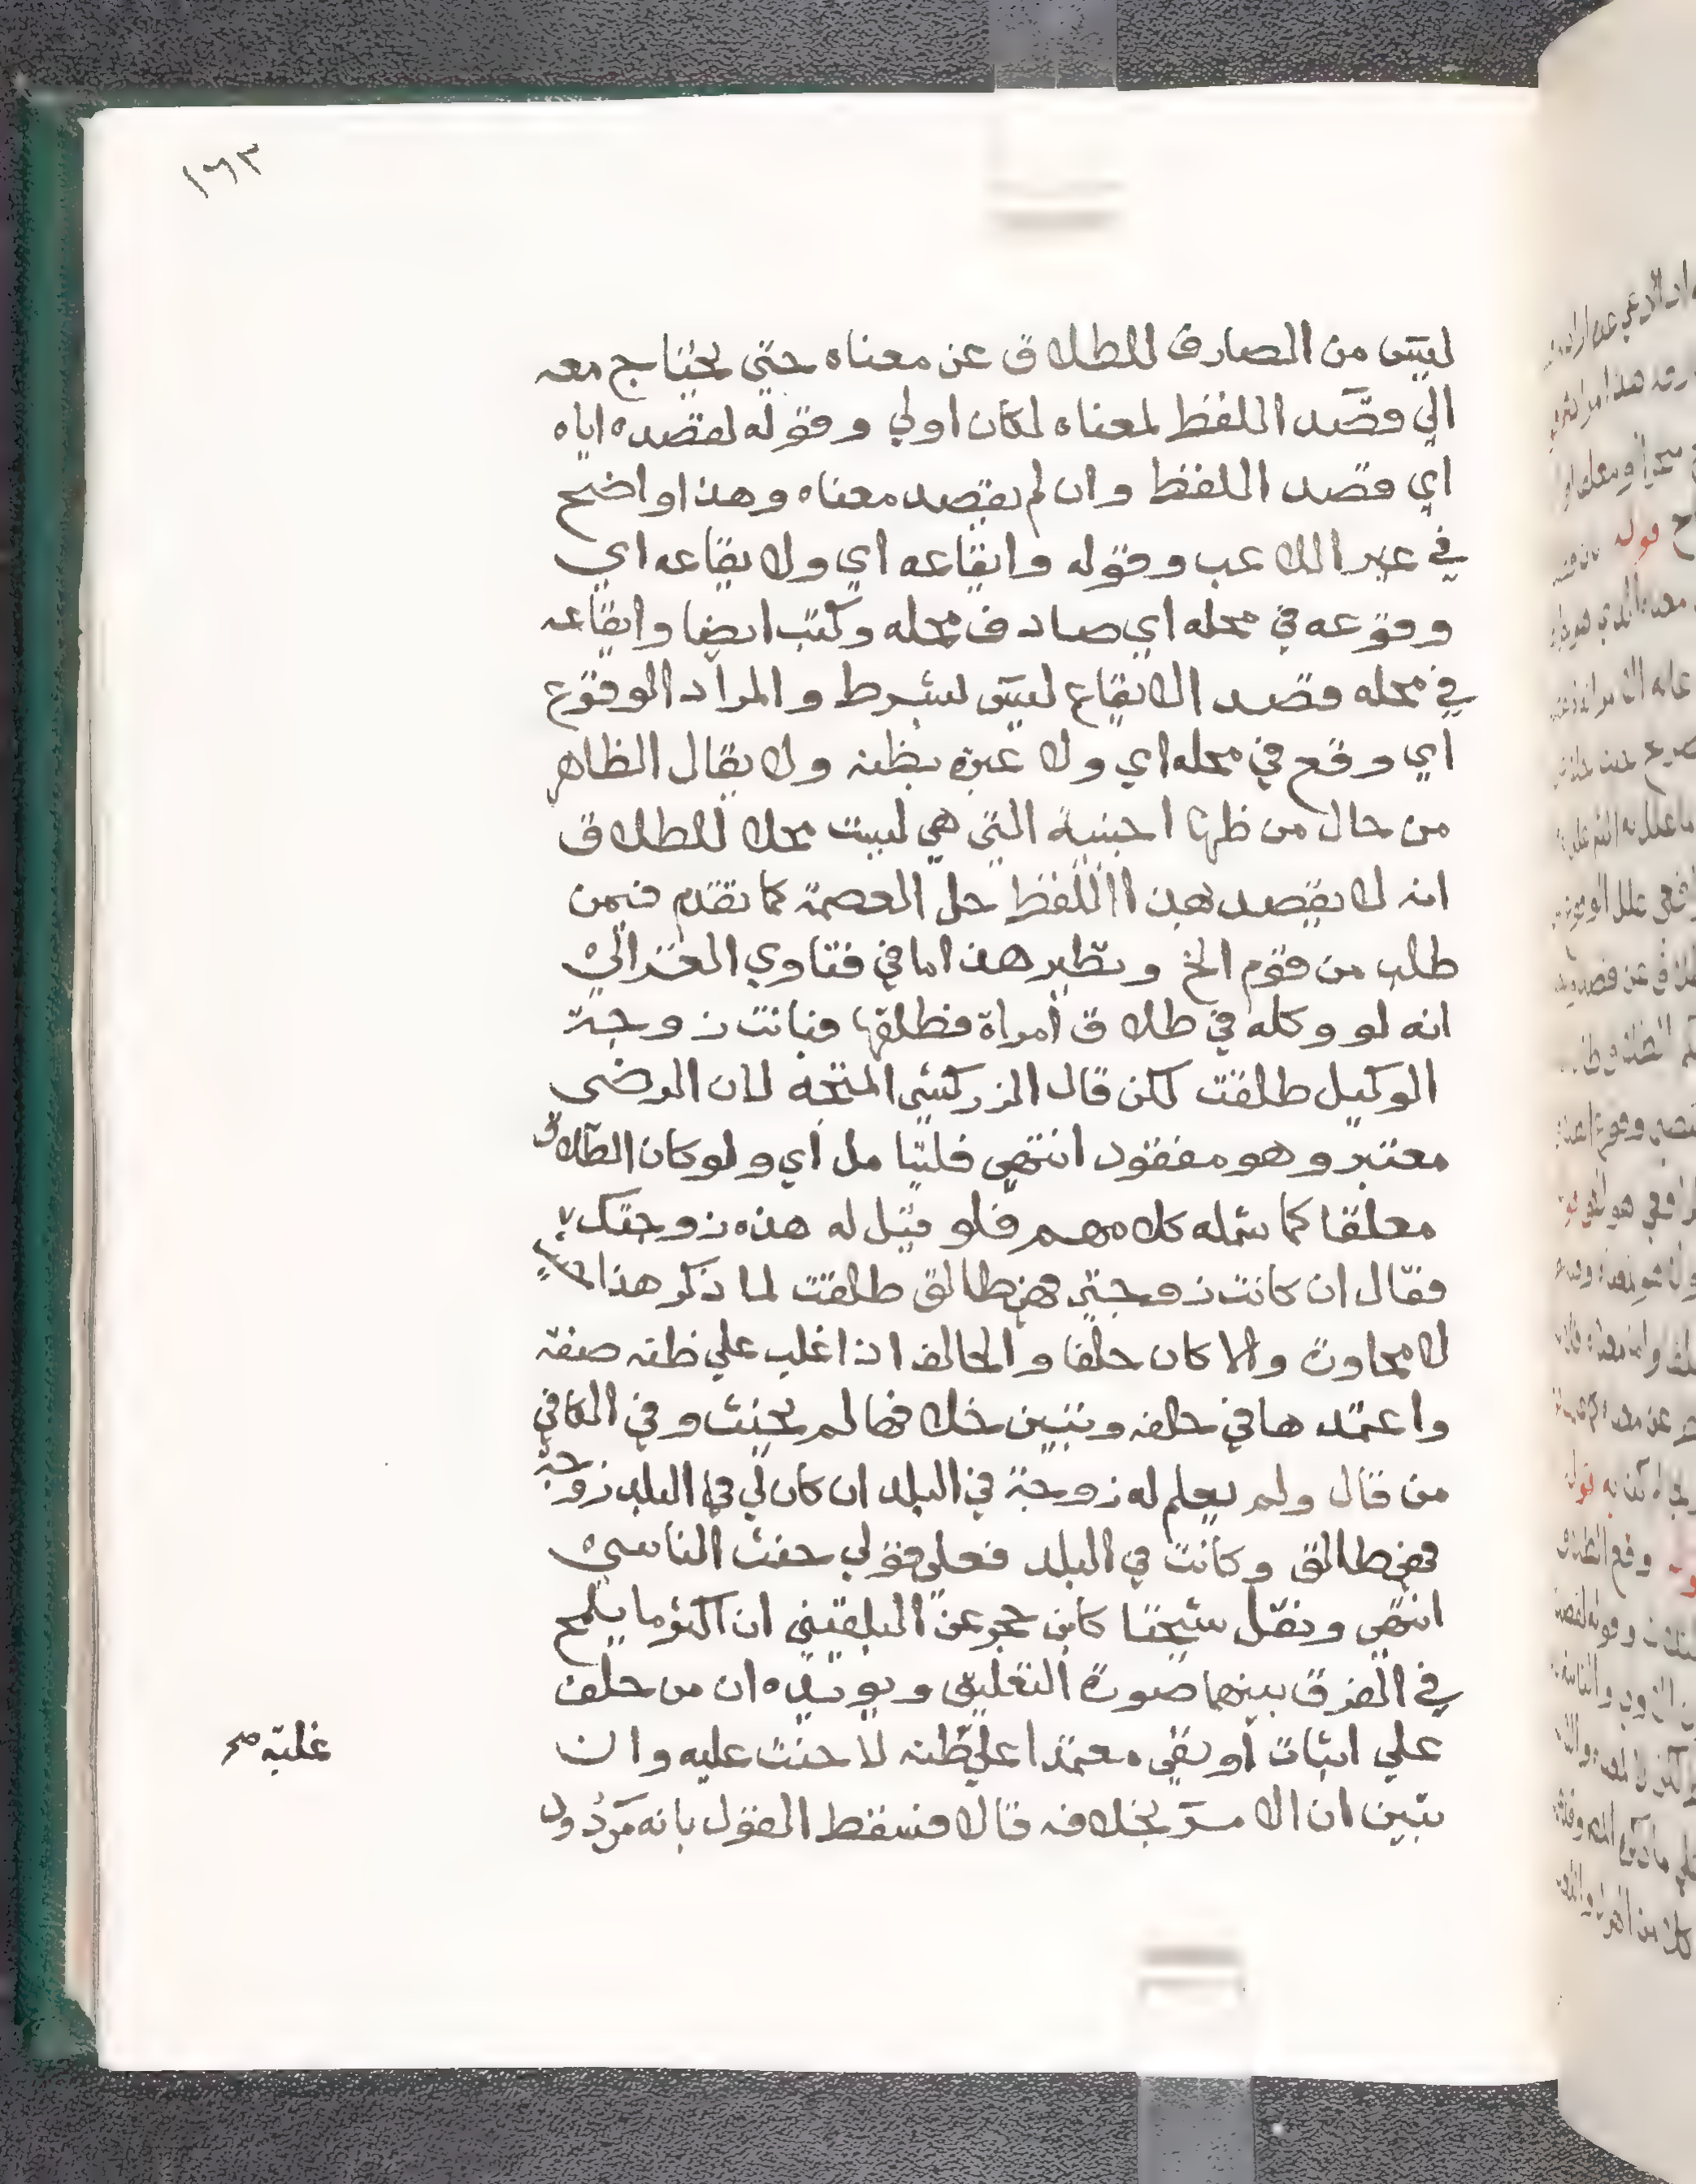 ١٦٣
ليس من الصارف للطلاق عن معناه حتي يحتاج معه
الي قصد اللفظ لمعناه لكان اولي وقوله لقصده اياه
اي قصد اللفظ وان لم يقصد معناه وهذا واضح
في غير اللاعب وقوله وايقاعه اي ولايقاعه اي
وقوعه في محله اي صادف محله وكتب ايضا وايقاعه
في محله قصد الايقاع ليس بشرط والمراد الوقوع
اي وقع في محله اي ولا عبرة بظنه ولا يقال الظاهر
من حال من ظنها اجنبية التي هي ليست محلا للطلاق
انه لا يقصد بهذا اللفظ حل العصمة كما تقدم فيمن
طلب من قوم الخ ونظير هذا ما في فتاوي الغزالي
انه لو وكله في طلاق امراة فطلقها فبانت زوجة
الوكيل طلقت لكن قال الزركشي المتجه لا لان الرضي
معتبر وهو مفقود انتهي فليتامل اي ولو كان الطلاق
معلقا كما شمله كلامهم فلو قيل له هذه زوجتك
فقال ان كانت زوجتي فهي طالق طلقت لما ذكر هذا حيث
لا محاورة والا كان حلفا والحالف اذا غلب علي ظنه صفة
واعتمدها في حلفه وتبين خلافها لم يحنث وفي الكافي
من قال ولم يعلم له زوجة في البلد ان كان لي في البلد زوجة
فهي طالق وكانت في البلد فعلي قولي حنث الناسي
انتهي ونقل شيخنا كابن حجر عن البلقيني ان اكثر ما يلمح
في الفرق بينهما صورة التعليق ويويده ان من حلف
علي اثبات او نفي معتمدا علي ظنه لا حنث عليه وان
تبين ان الامر بخلافه قال فسقط القول بانه مردود
غلبة صح